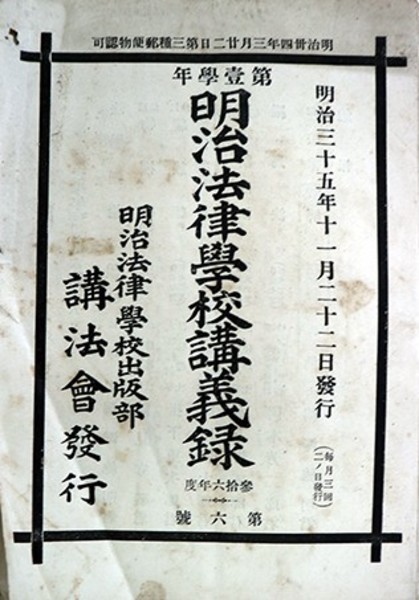 明治卅四年三月廿二日第三種郵便物認可
明治三十五年十一月二十二日發行
（每月三回二ノ日發行）
第壹學年
明治法律學校講義錄
參拾六年度
第六號
明治法律學校出版部
講法會發行